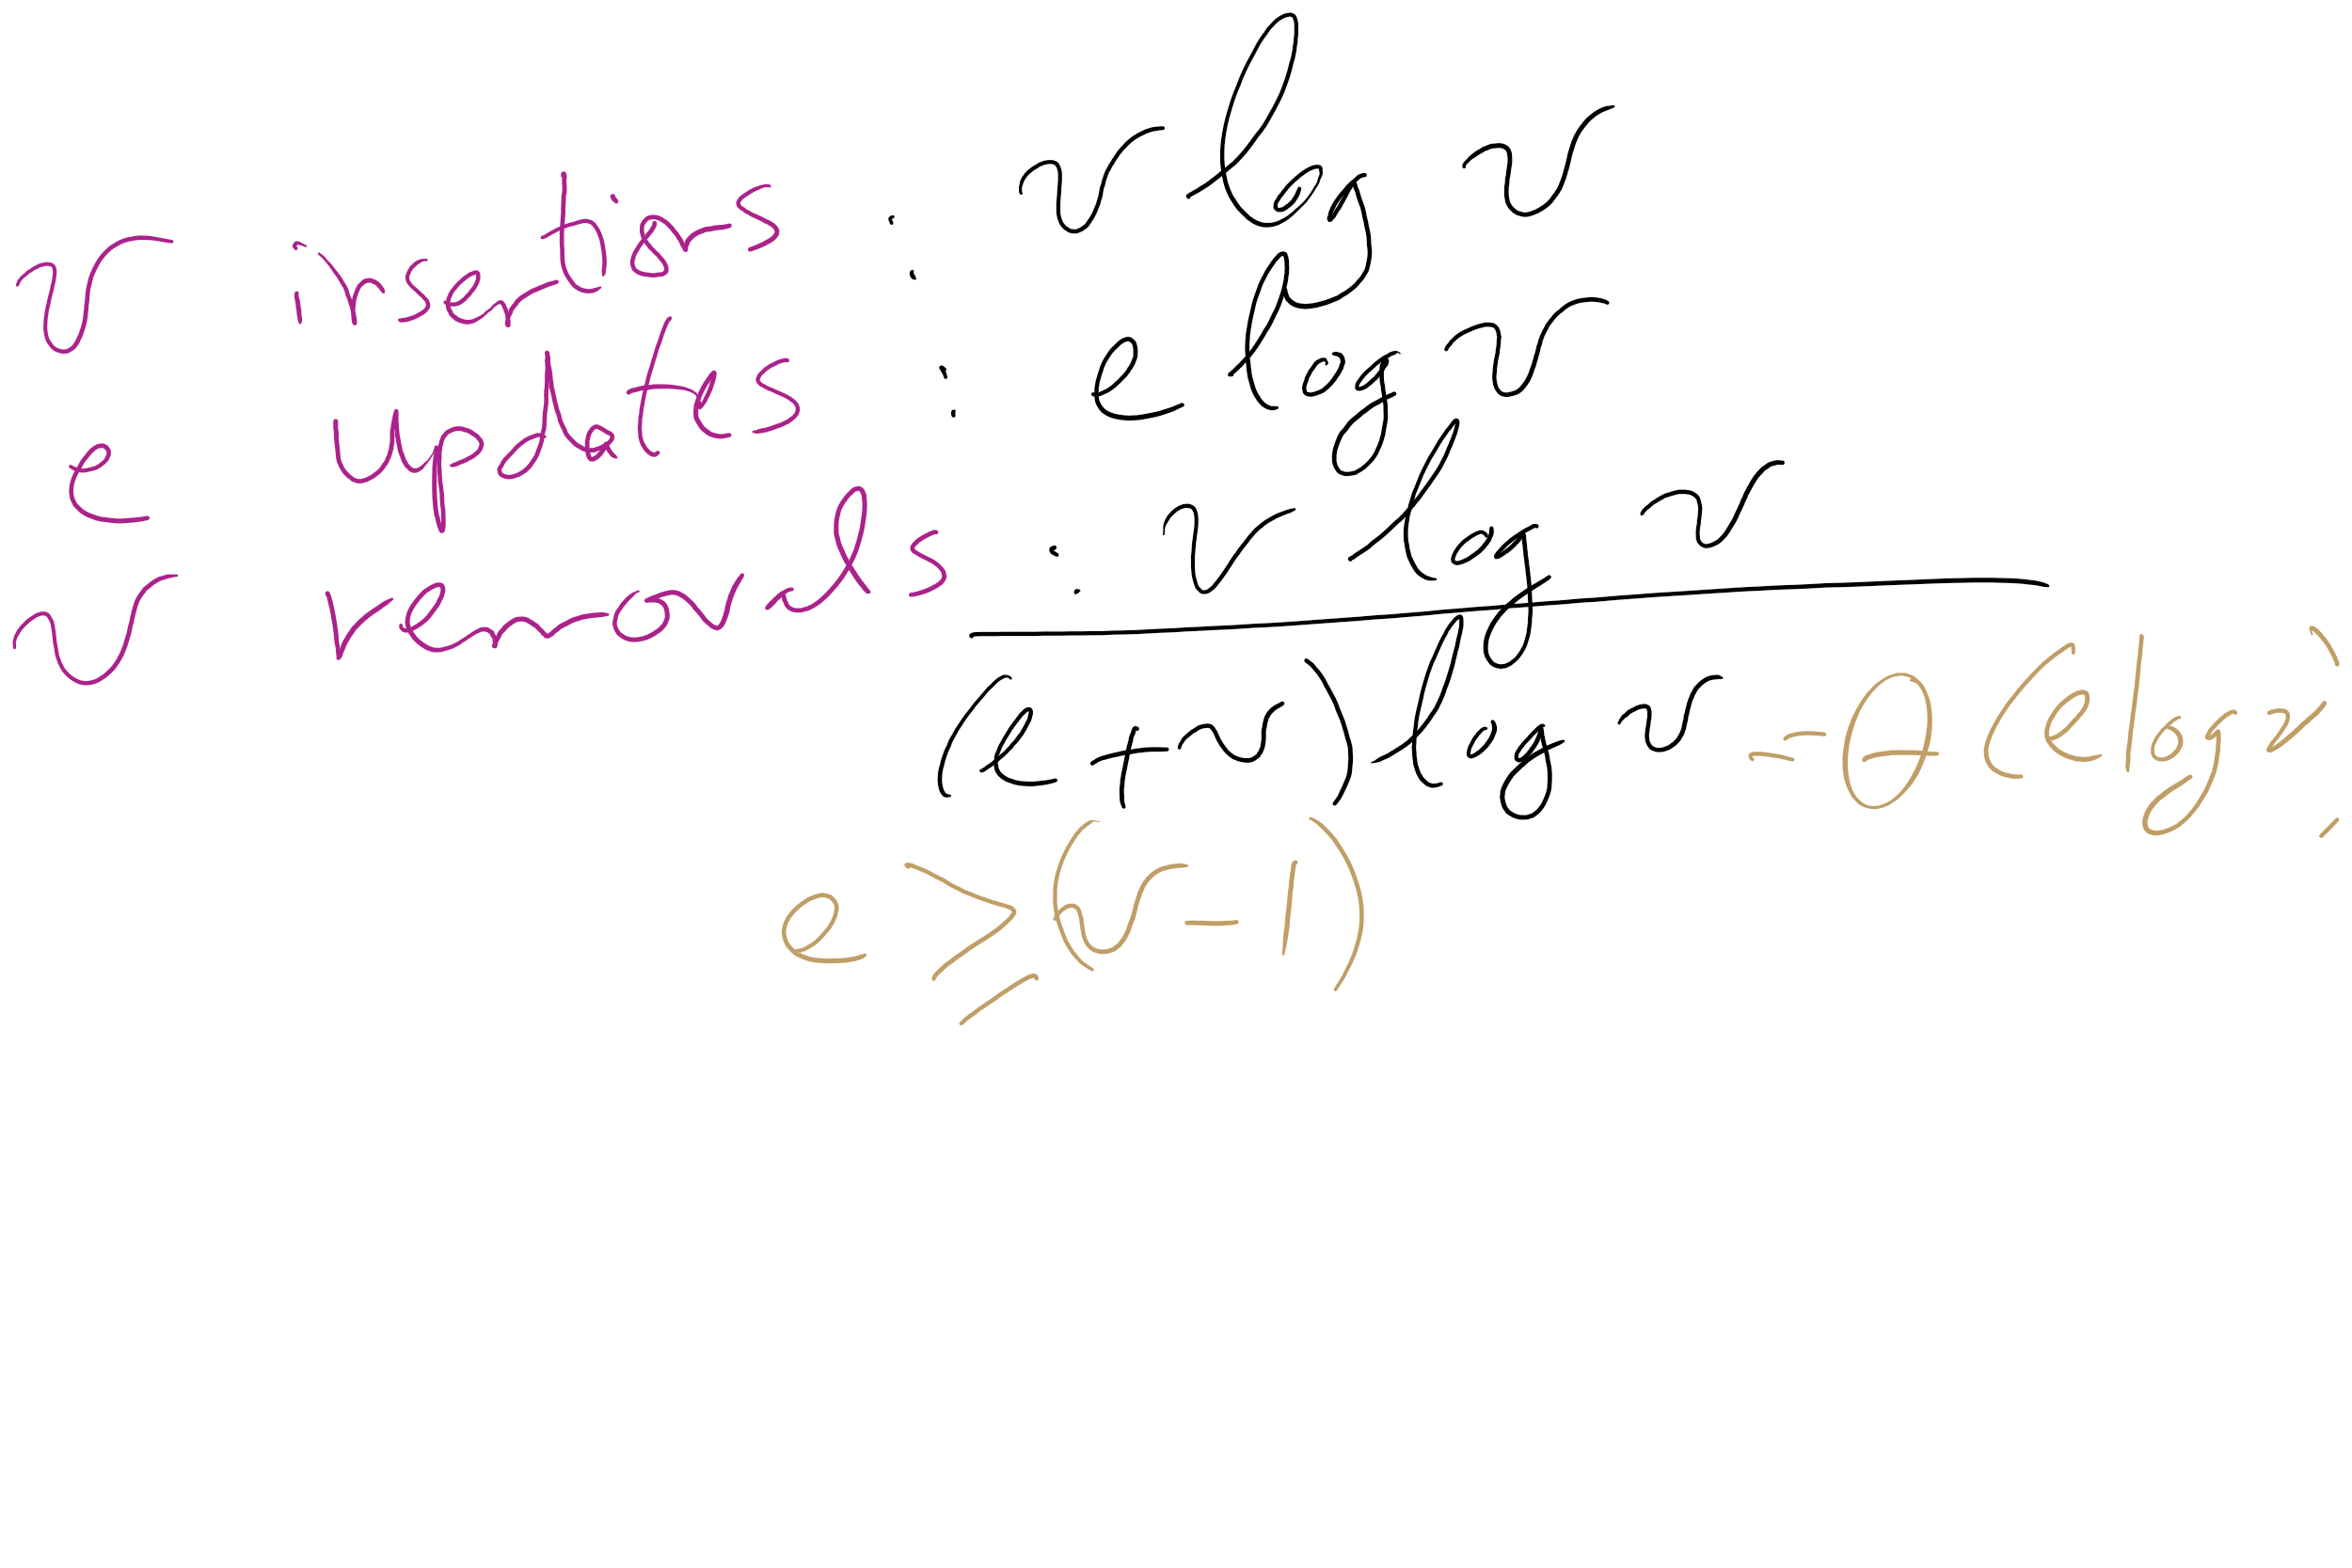 v insertions : v log v
e updates : e log v
v removals : v log v
(e+v) log v = θ(e log v)
e ≥ (v-1)